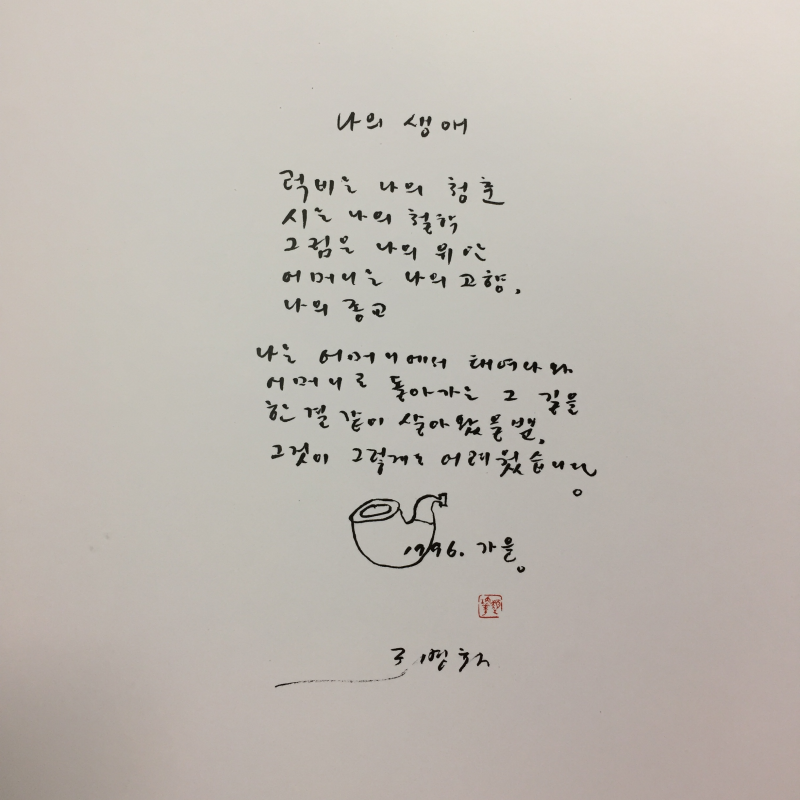 나의 생애
럭비는 나의 청춘
시는 나의 철학
그림은 나의 위안
어머니는 나의 고향,
나의 종교
나는 어머니에서 태여나와
어머니로 돌아가는 그 길을
한결같이 살아왔을뿐,
그것이 그렇게도 어려웠습니다.
1996. 가을.
조병화